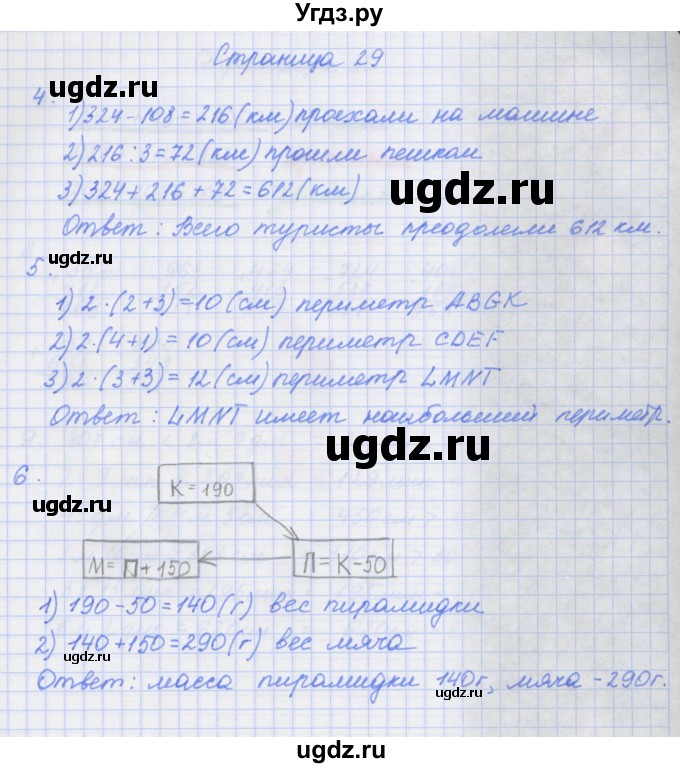 Угдз.ру
Страница 29
ugdz.ru
4.
1) 324 - 108 = 216 (км) проехали на машине
2) 216 : 3 = 72 (км) прошли пешком
ugdz.ru
3) 324 + 216 + 72 = 612 (км)
Ответ: Всего туристы преодолели 612 км.
ugdz.ru
5.
1) 2 · (2+3) = 10 (см) периметр ABGK
2) 2 · (4+1) = 10 (см) периметр CDEF
3) 2 · (3+3) = 12 (см) периметр LMNT
Ответ: LMNT имеет наибольший периметр.
ugdz.ru
6.
К = 190
ugdz.ru
М = П + 150
П = К - 50
1) 190 - 50 = 140 (г) вес пирамидки
2) 140 + 150 = 290 (г) вес мяча
ugdz.ru
Ответ: масса пирамидки 140г, мяча - 290г.
ugdz.ru
ugdz.ru